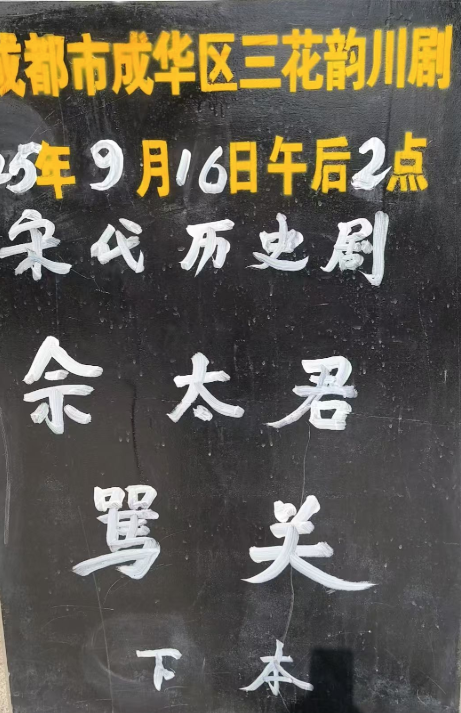 成都市成华区三花韵川剧
25年9月16日午后2点
宋代历史剧
佘太君
骂关
下本